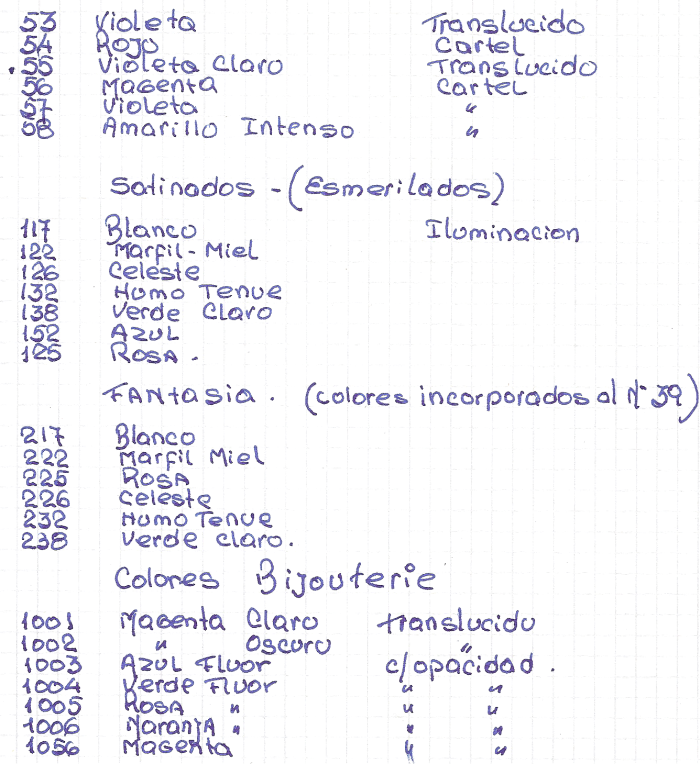 53 Violeta Translucido
54 Rojo Cartel
55 Violeta Claro Translucido
56 Magenta Cartel
57 Violeta "
58 Amarillo Intenso "
Satinados - (Esmerilados)
117 Blanco Iluminacion
122 Marfil - Miel
126 Celeste
132 Humo Tenue
138 Verde Claro
152 AZUL
125 ROSA.
FANtasia. (colores incorporados al Nº 39)
217 Blanco
222 Marfil Miel
225 ROSA
226 Celeste
232 Humo Tenue
238 Verde claro.
Colores Bijouterie
1001 Magenta Claro translucido
1002 " Oscuro "
1003 AZUL Fluor c/opacidad.
1004 Verde Fluor " "
1005 ROSA " " "
1006 NaranjA " " "
1056 Magenta " "